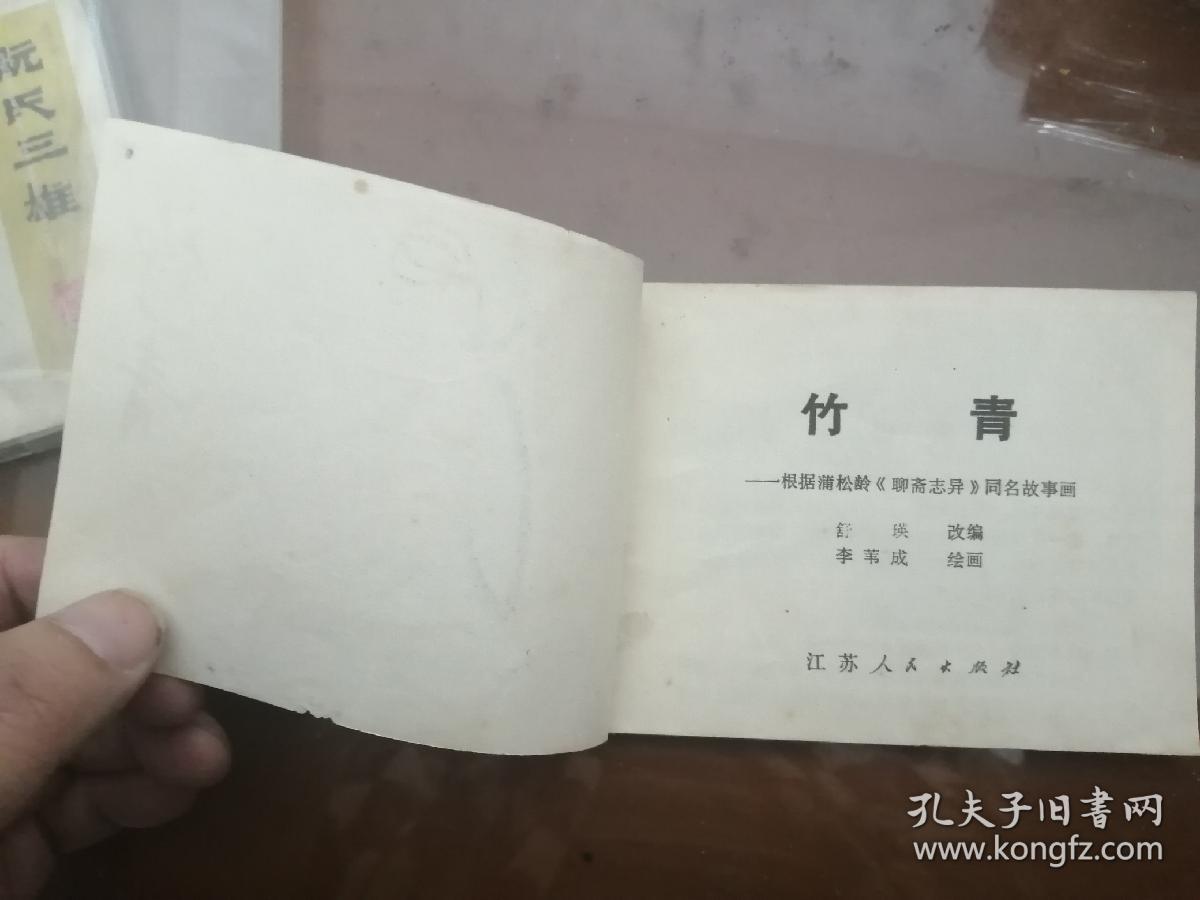 阮氏三雄
竹 青
——根据蒲松龄《聊斋志异》同名故事画
舒 瑛 改编
李苇成 绘画
江苏人民出版社
孔夫子旧书网
www.kongfz.com